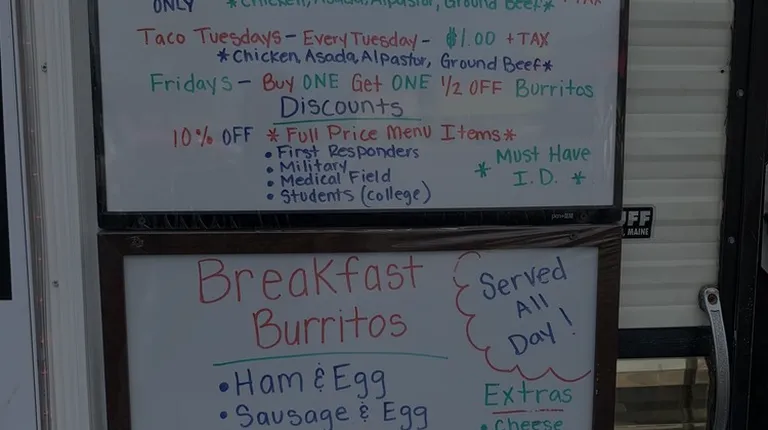 ONLY *Chicken, Asada, Alpastor, Ground Beef* + TAX
Taco Tuesdays - Every Tuesday - $1.00 + TAX
*Chicken, Asada, Alpastor, Ground Beef*
Fridays - Buy ONE Get ONE 1/2 OFF Burritos
Discounts
10% OFF *Full Price Menu Items*
• First Responders
• Military
• Medical Field
• Students (college)
* Must Have
I.D. *
Breakfast
Burritos
• Ham & Egg
• Sausage & Egg
Served
All
Day!
Extras
• Cheese
MAINE